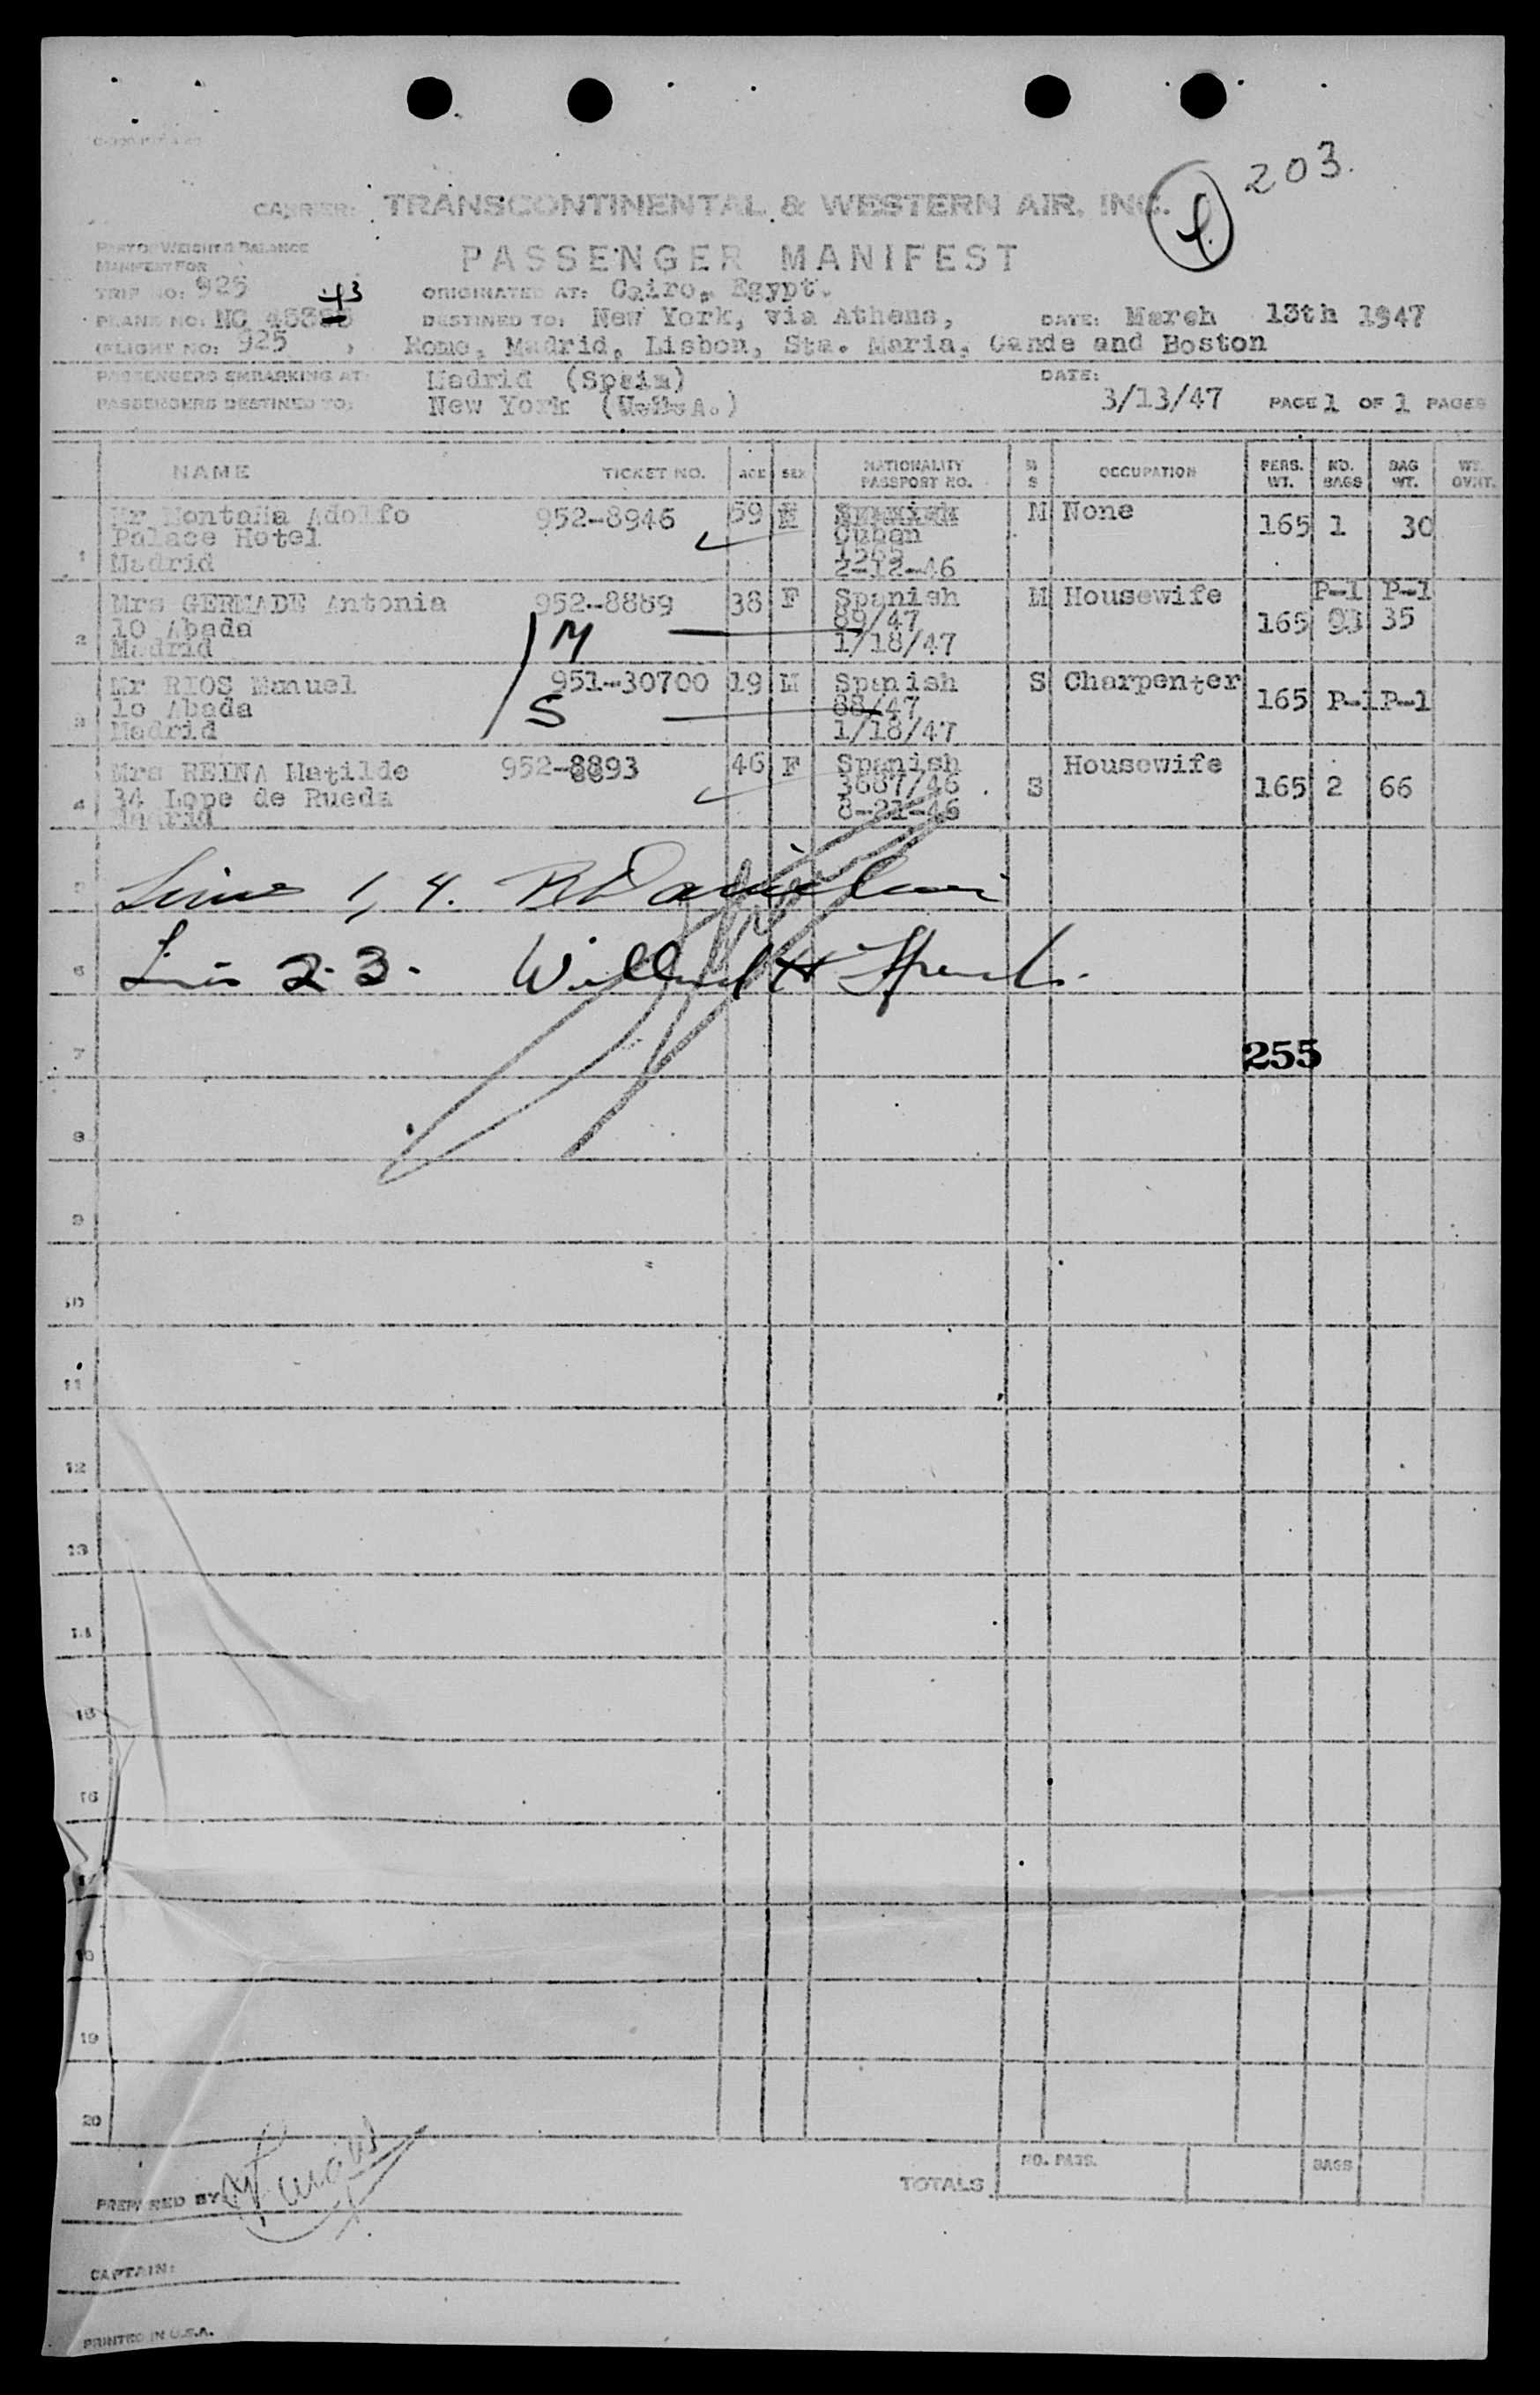 203.
CARRIER: TRANSCONTINENTAL & WESTERN AIR, INC.
PART OF WEIGHT & BALANCE
MANIFEST FOR
PASSENGER MANIFEST
TRIP NO: 925
ORIGINATED AT: Cairo, Egypt.
PLANE NO: NC 43
DESTINED TO: New York, via Athens, DATE: March 13th 1947
(FLIGHT NO: 925 ) Rome, Madrid, Lisbon, Sta. Maria, Gande and Boston
PASSENGERS EMBARKING AT: Madrid (Spain) DATE:
PASSENGERS DESTINED TO: New York ( A.) 3/13/47 PAGE 1 OF 1 PAGES
NAME TICKET NO. AGE SEX NATIONALITY PASSPORT NO. M S OCCUPATION PERS. WT. NO. BAGS BAG WT. WT. OVHT.
Mr Montaña Adolfo 952-8946 59 Spanish M None
Palace Hotel Cuban 165 1 30
1 Madrid 1565
2-12-46
Mrs GERMADE Antonia 952-8889 38 F Spanish M Housewife P-1 P-1
10 Abada M 89/47 165 35
2 Madrid 1/18/47
Mr RIOS Manuel 951-30700 19 M Spanish S Charpenter
10 Abada S 88/47 165 P-1 P-1
3 Madrid 1/18/47
Mrs REINA Matilde 952-8893 46 F Spanish Housewife
34 Lope de Rueda 3667/46 S 165 2 66
4 Madrid 8-21-46
5 Lines 1, 4.
6 Lines 2-3. Willard H
7 255
8
9
10
11
12
13
14
15
16
17
18
19
20
TOTALS NO. PASS. BAGS
PREPARED BY
CAPTAIN:
PRINTED IN U.S.A.